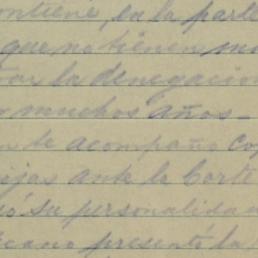 ontiene, en la parte
que no tienen
la denegacion
muchos años-
de acompaño
ante la Corte
su personalidad
presentó la